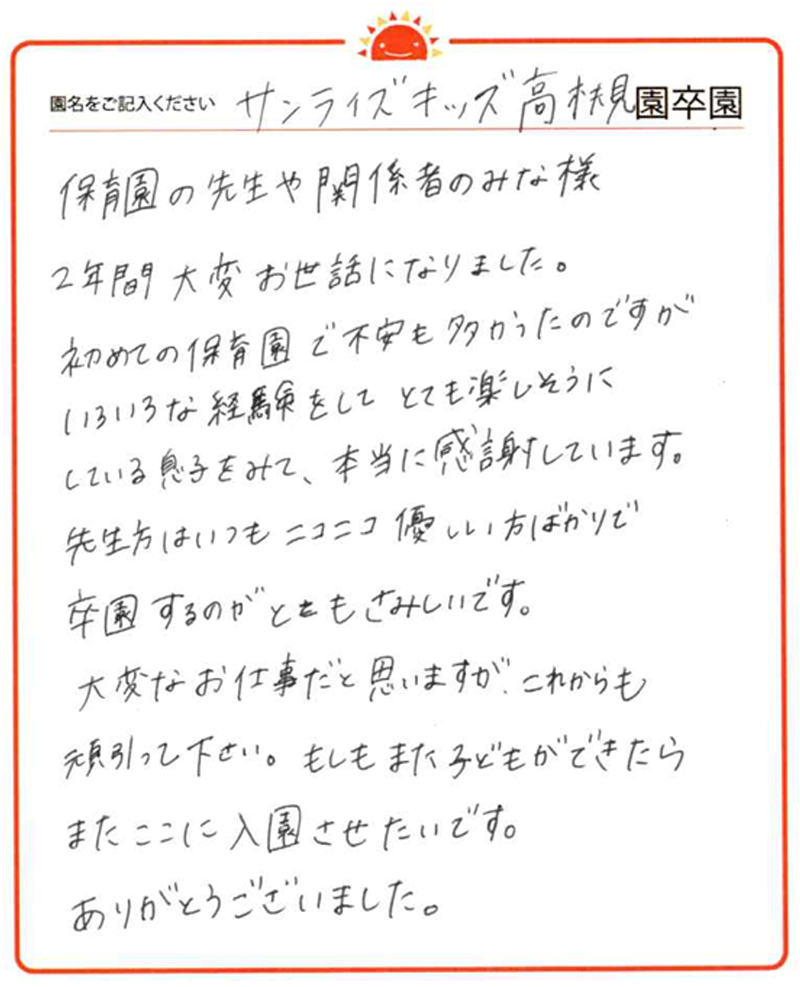 園名をご記入ください サンライズキッズ高槻園卒園
保育園の先生や関係者のみな様
2年間大変お世話になりました。
初めての保育園で不安も多かったのですが
いろいろな経験をしてとても楽しそうに
している息子をみて、本当に感謝しています。
先生方はいつもニコニコ優しい方ばかりで
卒園するのがとてもさみしいです。
大変なお仕事だと思いますが、これからも
頑張って下さい。もしもまた子どもができたら
またここに入園させたいです。
ありがとうございました。